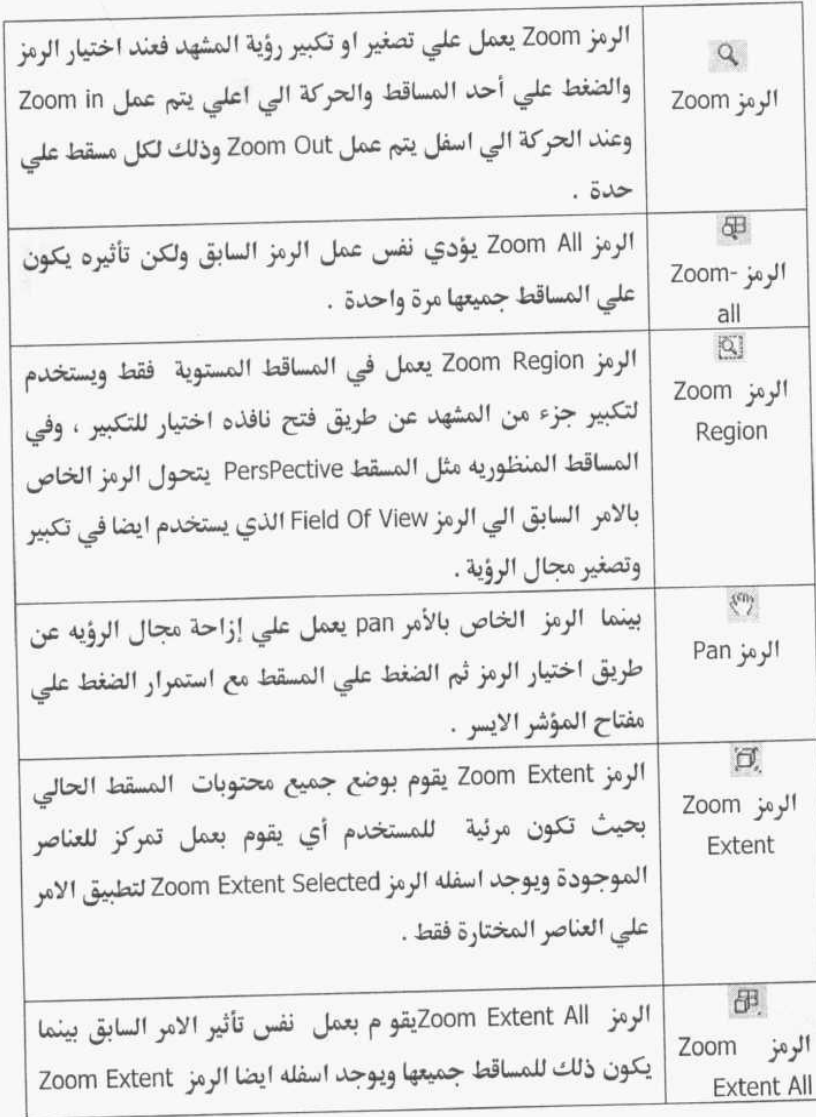 الرمز Zoom
الرمز Zoom يعمل علي تصغير او تكبير رؤية المشهد فعند اختيار الرمز
والضغط علي أحد المساقط والحركة الي اعلي يتم عمل Zoom in
وعند الحركة الي اسفل يتم عمل Zoom Out وذلك لكل مسقط علي
حدة .
الرمز Zoom-
all
الرمز Zoom All يؤدي نفس عمل الرمز السابق ولكن تأثيره يكون
علي المساقط جميعها مرة واحدة .
الرمز Zoom
Region
الرمز Zoom Region يعمل في المساقط المستوية فقط ويستخدم
لتكبير جزء من المشهد عن طريق فتح نافذه اختيار للتكبير ، وفي
المساقط المنظوريه مثل المسقط PersPective يتحول الرمز الخاص
بالامر السابق الي الرمز Field Of View الذي يستخدم ايضا في تكبير
وتصغير مجال الرؤية .
الرمز Pan
بينما الرمز الخاص بالأمر pan يعمل علي إزاحة مجال الرؤيه عن
طريق اختيار الرمز ثم الضغط علي المسقط مع استمرار الضغط علي
مفتاح المؤشر الايسر .
الرمز Zoom
Extent
الرمز Zoom Extent يقوم بوضع جميع محتوبات المسقط الحالي
بحيث تكون مرئية للمستخدم أي يقوم بعمل تمركز للعناصر
الموجودة ويوجد اسفله الرمز Zoom Extent Selected لتطبيق الامر
علي العناصر المختارة فقط .
الرمز Zoom
Extent All
الرمز Zoom Extent All يقو م بعمل نفس تأثير الامر السابق بينما
يكون ذلك للمساقط جميعها ويوجد اسفله ايضا الرمز Zoom Extent